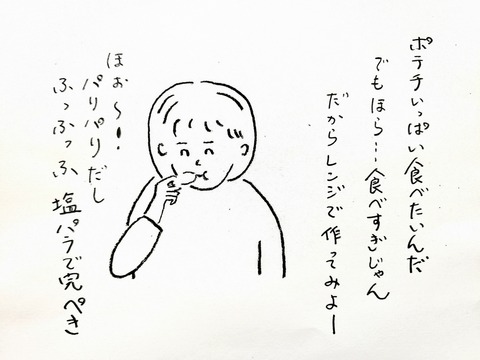 ポテチいっぱい食べたいんだ
でもほら…食べすぎじゃん
だからレンジで作ってみよー
ほぉ〜！
パリパリだし
ふっふっふ 塩パラで完ぺき